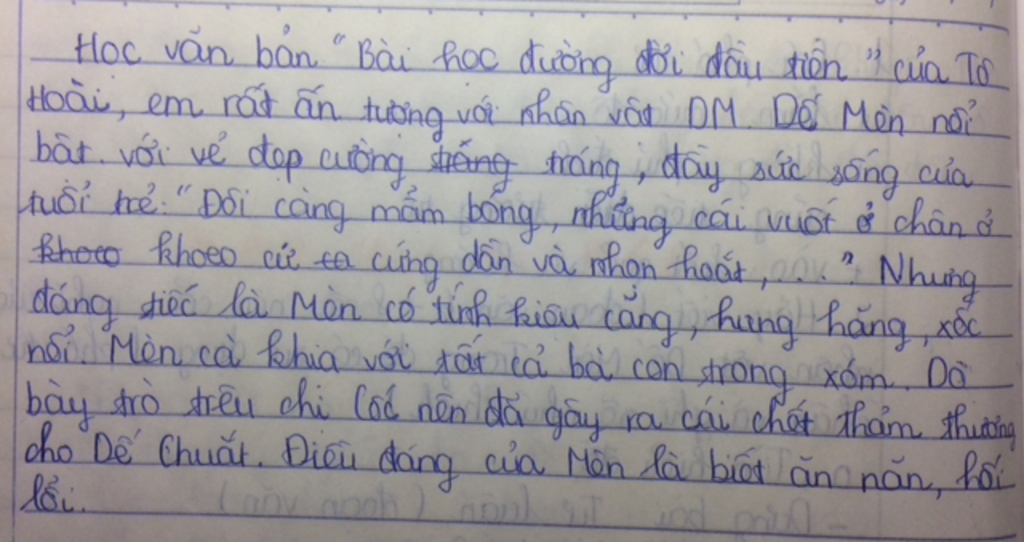 Học văn bản "Bài học đường đời đầu tiên" của Tô
Hoài, em rất ấn tượng với nhân vật DM. Dế Mèn nổi
bật. với vẻ đẹp cường tráng tráng, đầy sức sống của
tuổi trẻ: "Đôi càng mẫm bóng, những cái vuốt ở chân ở
khoeo khoeo cứ ta cứng dần và nhọn hoắt, ... ". Nhưng
đáng tiếc là Mèn có tính kiêu căng, hung hăng, xốc
nổi. Mèn cà khịa với tất cả bà con trong xóm. Dã
bày trò trêu chị Cốc nên đã gây ra cái chết thảm thương
cho Dế Choắt. Điều đáng của Mèn là biết ăn năn, hối
lỗi.